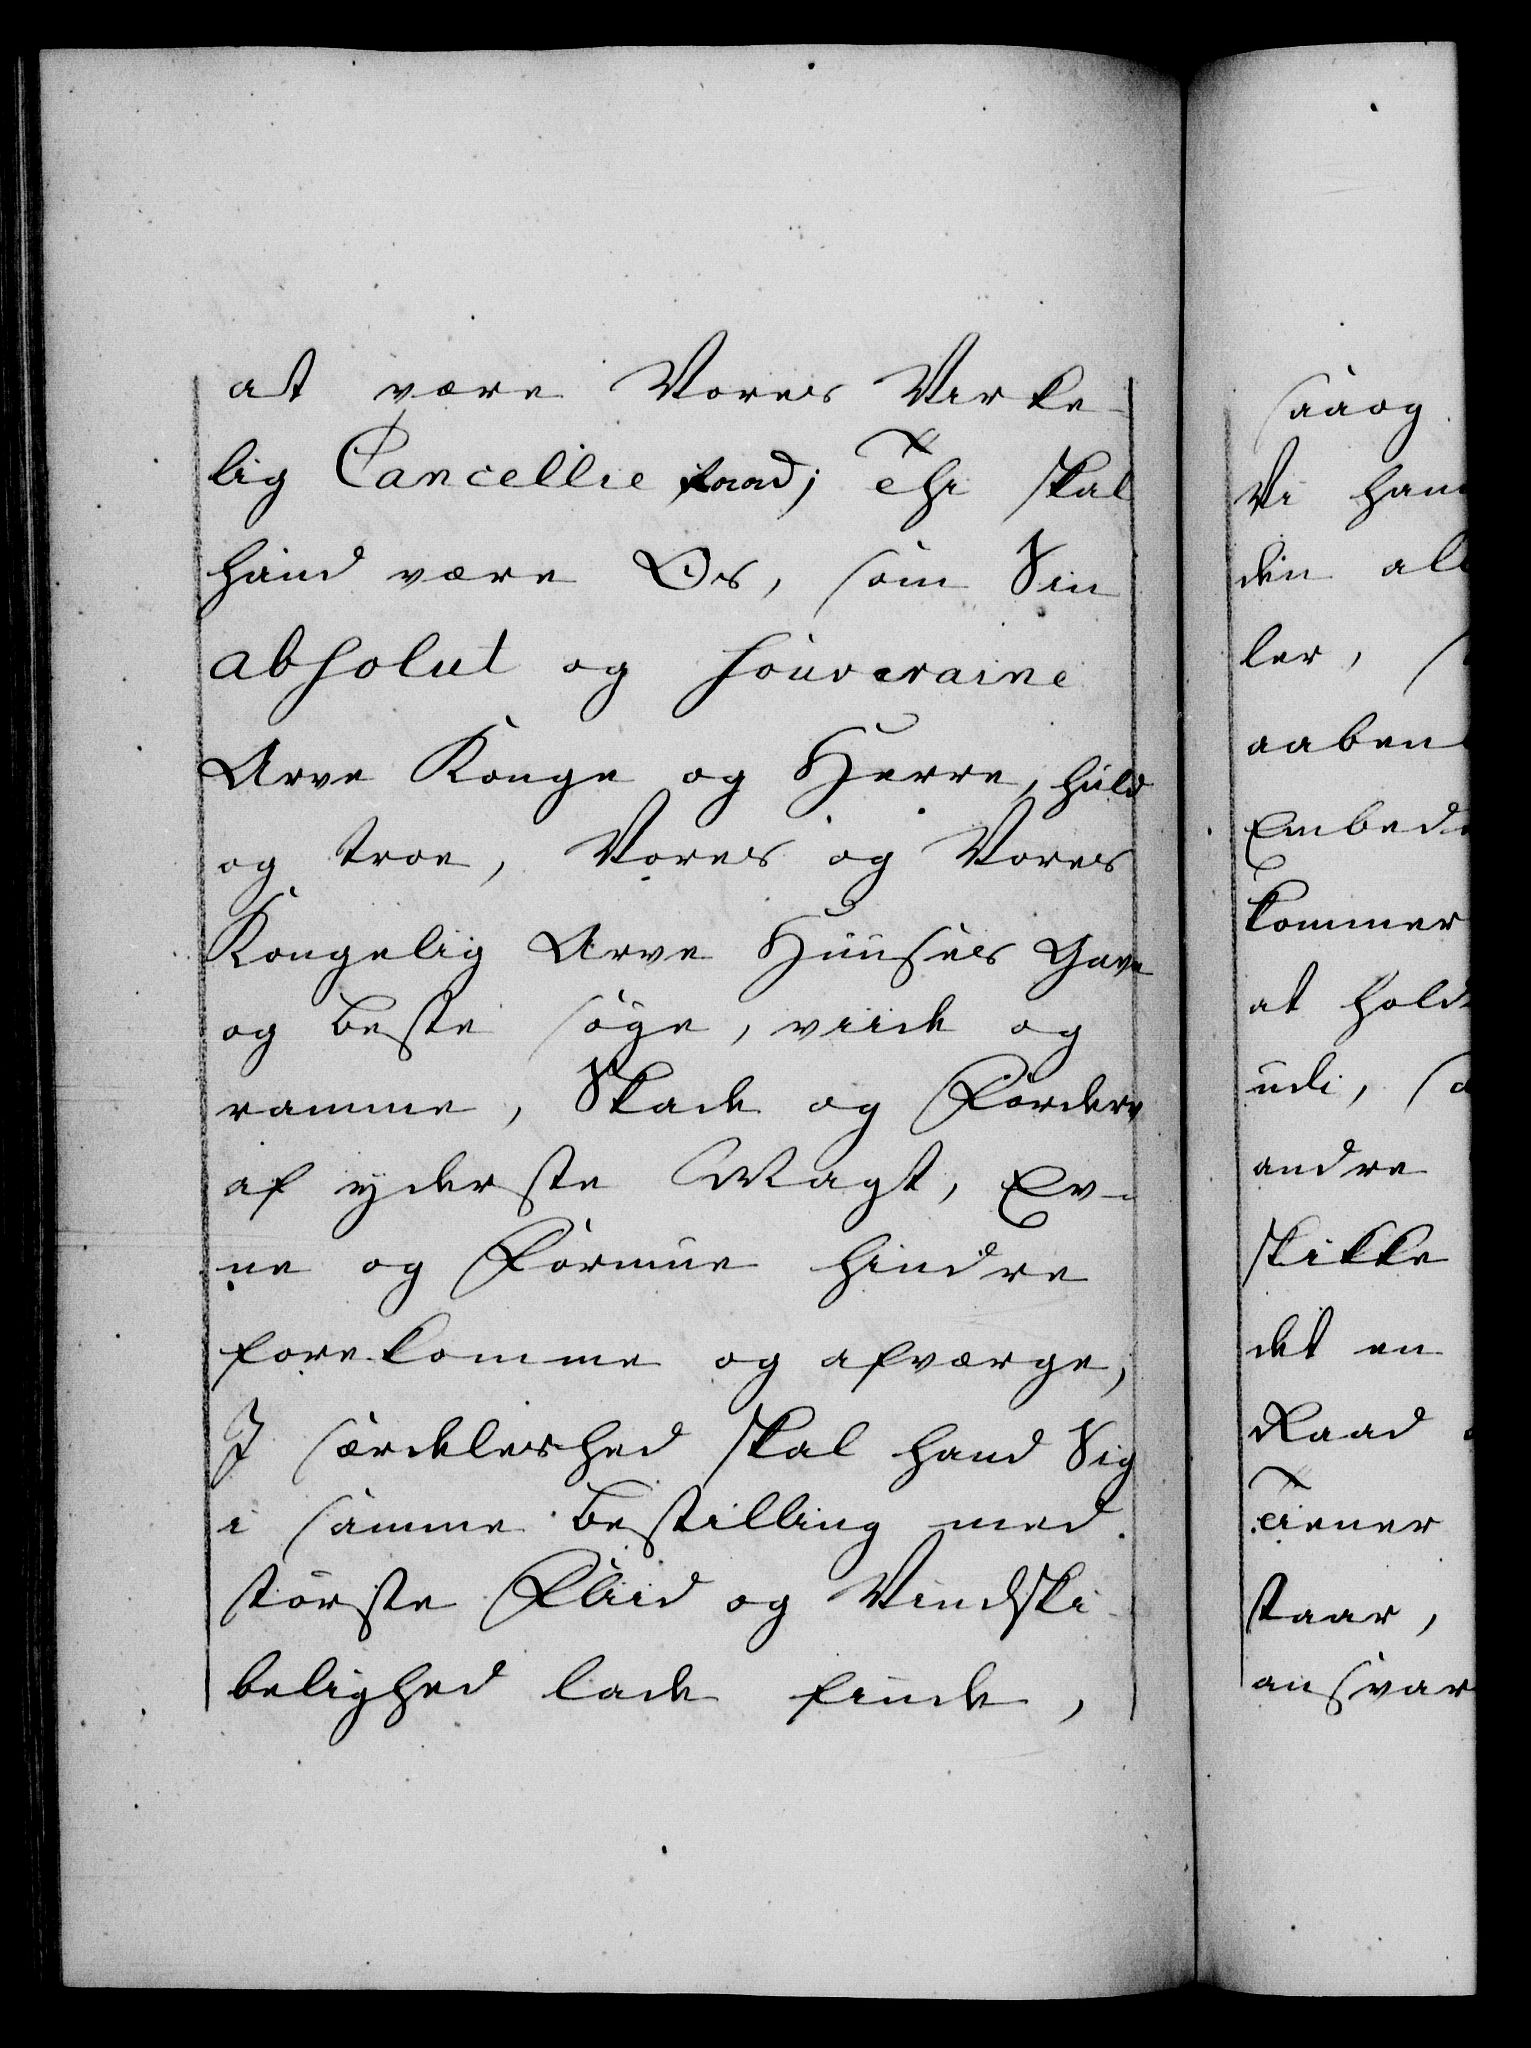 at være Vores Virke-
lig Cancellie Raad; Thi skal
hand være Os, som Sin
absolut og souveraine
Arve Konge og Herre, huld
og troe, Vores og Vores
Kongelig Arve Huuses Gavn
og beste söge, viide og
ramme, Skade og Forderv
af yderste Magt, Ev-
ne og Formue hindre
forekomme og afværge,
I særdeleshed skal hand Sig
i samme bestilling med
störste Fliid og Vindski-
belighed lade finde,
saaog
Vi ham
den all
ler, 
aaben
Embede
kommer
at hold
udi, 
andre
skikke
det en
Raad
Tiener
staar,
ansvar